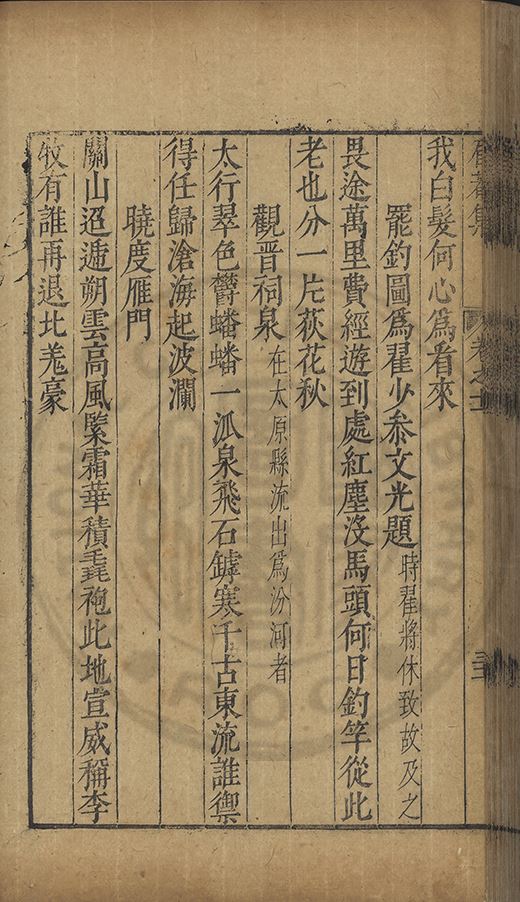 我白髮何心為看來
罷釣圖為翟少叅文光題 時翟將休致故及之
畏途萬里費經遊到處紅塵沒馬頭何日釣竿從此
老也分一片荻花秋
觀晉祠泉 在太原縣流出為汾河者
太行翠色欝蟠蟠一派泉飛石罅寒千古東流誰禦
得任歸滄海起波瀾
曉度雁門
關山迢遞朔雲高風緊霜華積毳袍此地宣威稱李
牧有誰再退北羗豪